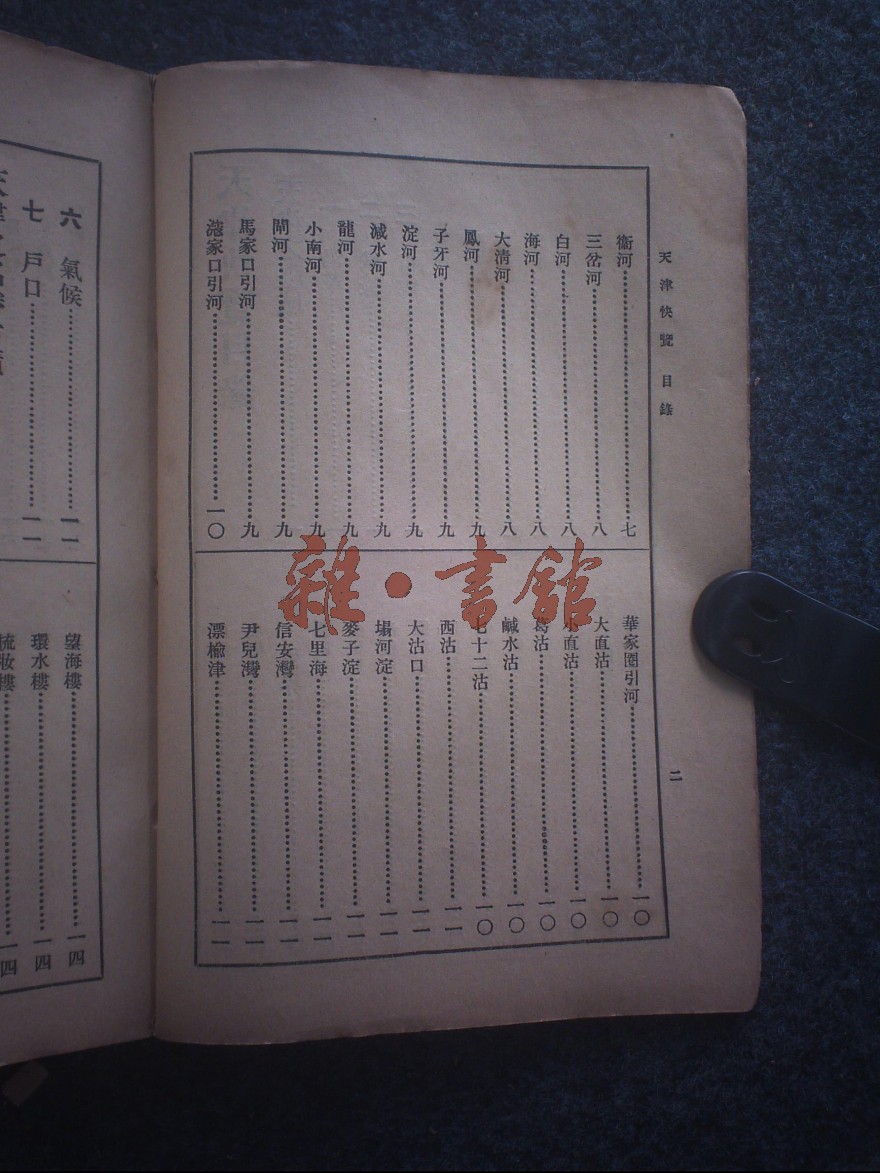 天津快覽 目錄
二
衞河……七
三岔河……八
白河……八
海河……八
大清河……八
鳳河……九
子牙河……九
淀河……九
減水河……九
龍河……九
小南河……九
閘河……九
馬家口引河……九
家口引河……一〇
華家圈引河……一〇
大直沽……一〇
小直沽……一〇
葛沽……一〇
鹹水沽……一〇
七十二沽……一〇
西沽……一一
大沽口……一一
塌河淀……一一
麥子淀……一一
七里海……一一
信安灣……一一
尹兒灣……一一
漂榆津……一一
六 氣候……一一
七 戶口……一一
望海樓……一四
環水樓……一四
梳妝樓……一四
雜·書館